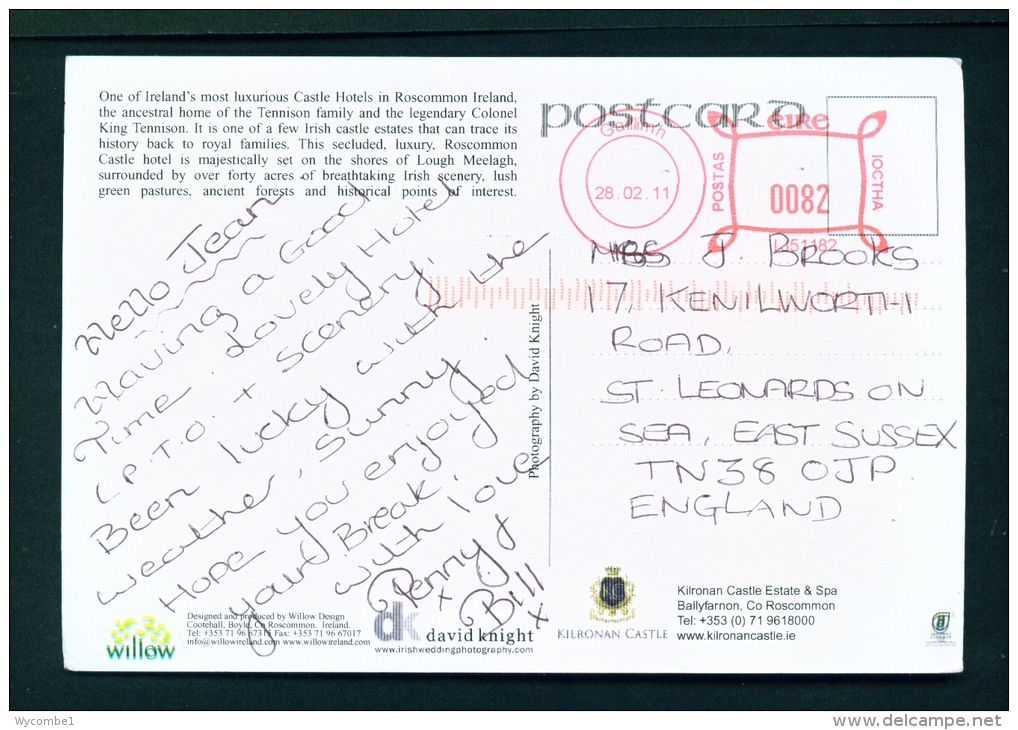 One of Ireland's most luxurious Castle Hotels in Roscommon Ireland,
the ancestral home of the Tennison family and the legendary Colonel
King Tennison. It is one of a few Irish castle estates that can trace its
history back to royal families. This secluded, luxury, Roscommon
Castle hotel is majestically set on the shores of Lough Meelagh,
surrounded by over forty acres of breathtaking Irish scenery, lush
green pastures, ancient forests and historical points of interest.
postcard
Gaillimh
28.02.11
éire
POSTAS
0082
IOCTHA
Hello Jean
Having a Good
Time Lovely Hotel
(P.T.O. + scenery.
Been lucky with the
weather, sunny.
Hope you enjoyed
your Break,
with love
Penny
+
Bill
x
MISS J. BROOKS
17, KENILWORTH
ROAD,
ST. LEONARDS ON
SEA, EAST SUSSEX
TN38 0JP.
ENGLAND
Photography by David Knight
willow
Designed and produced by Willow Design
Cootehall, Boyle, Co Roscommon. Ireland.
Tel: +353 71 96 67315 Fax: +353 71 96 67017
info@willowireland.com www.willowireland.com
dk david knight
www.irishweddingphotography.com
KILRONAN CASTLE
Kilronan Castle Estate & Spa
Ballyfarnon, Co Roscommon
Tel: +353 (0) 71 9618000
www.kilronancastle.ie
Wycombe1
www.delcampe.net